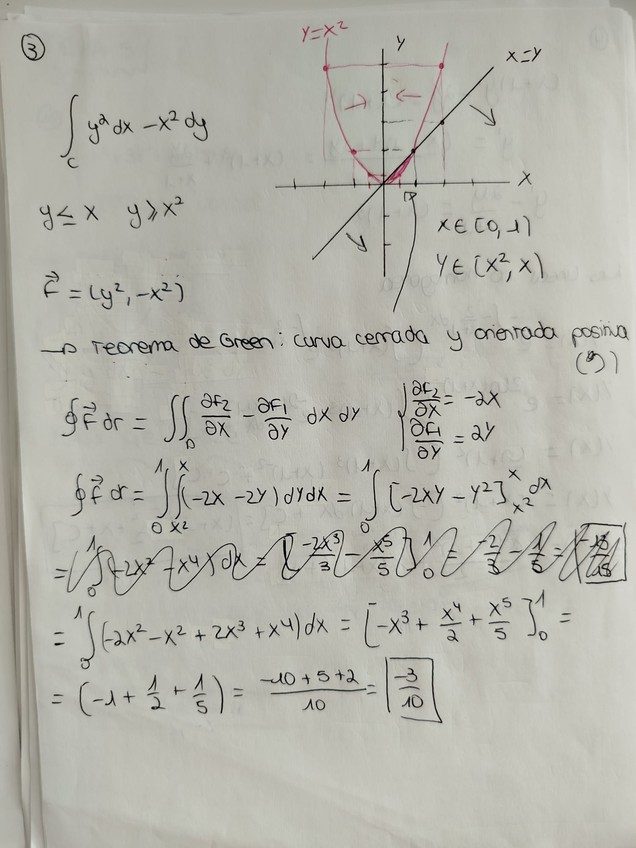 ③
y=x²
y
x=y
∫_C y² dx − x² dy
x
y ≤ x   y ≥ x²
D
x ∈ [0, 1)
y ∈ [x², x)
F⃗ = (y², −x²)
→ Teorema de Green: curva cerrada y orientada positiva
(↺)
∮ F⃗ dr = ∬_D ∂F₂/∂x − ∂F₁/∂y dx dy   { ∂F₂/∂x = −2x
∂F₁/∂y = 2y
∮ F⃗ dr = ∫₀¹ ∫_{x²}^{x} (−2x − 2y) dy dx = ∫₀¹ [−2xy − y²]_{x²}^{x} dx
= ∫₀¹ (−2x² − x⁴) dx = [−2x³/3 − x⁵/5]₀¹ = −2/3 − 1/5 =
= ∫₀¹ (−2x² − x² + 2x³ + x⁴) dx = [−x³ + x⁴/2 + x⁵/5]₀¹ =
= (−1 + 1/2 + 1/5) = (−10 + 5 + 2)/10 = −3/10